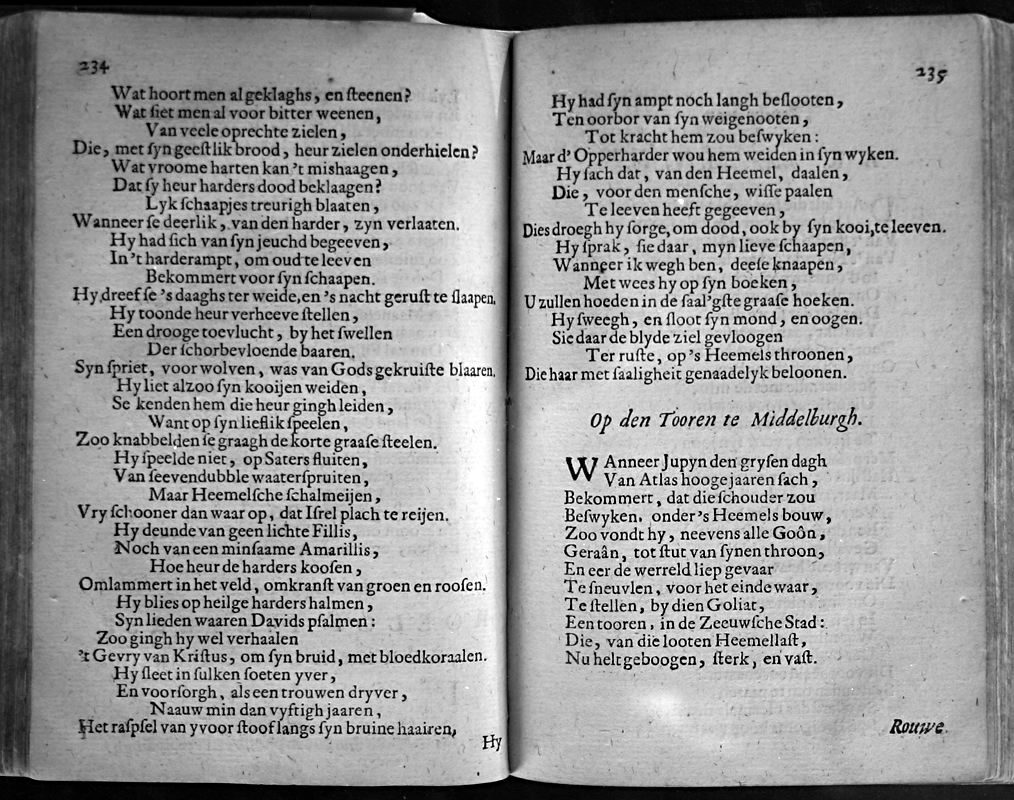 234
Wat hoort men al geklaghs, en ſteenen?
Wat ſiet men al voor bitter weenen,
Van veele oprechte zielen,
Die, met ſyn geeſtlik brood, heur zielen onderhielen?
Wat vroome harten kan 't mishaagen,
Dat ſy heur harders dood beklaagen?
Lyk ſchaapjes treurigh blaaten,
Wanneer ſe deerlik, van den harder, zyn verlaaten.
Hy had ſich van ſyn jeuchd begeeven,
In 't harderampt, om oud te leeven
Bekommert voor ſyn ſchaapen.
Hy dreef ſe 's daaghs ter weide, en 's nacht geruſt te ſlaapen,
Hy toonde heur verheeve ſtellen,
Een drooge toevlucht, by het ſwellen
Der ſchorbevloende baaren.
Syn ſpriet, voor wolven, was van Gods gekruiſte blaaren,
Hy liet alzoo ſyn kooijen weiden,
Se kenden hem die heur gingh leiden,
Want op ſyn lieflik ſpeelen,
Zoo knabbelden ſe graagh de korte graaſe ſteelen.
Hy ſpeelde niet, op Saters fluiten,
Van ſeevendubble waaterſpruiten,
Maar Heemelſche ſchalmeijen,
Vry ſchooner dan waar op, dat Iſrel plach te reijen.
Hy deunde van geen lichte Fillis,
Noch van een minſaame Amarillis,
Hoe heur de harders kooſen,
Omlammert in het veld, omkranſt van groen en rooſen.
Hy blies op heilge harders halmen,
Syn lieden waaren Davids pſalmen:
Zoo gingh hy wel verhaalen
't Gevry van Kriſtus, om ſyn bruid, met bloedkoraalen.
Hy ſleet in ſulken ſoeten yver,
En voorſorgh, als een trouwen dryver,
Naauw min dan vyftigh jaaren,
Het raſpſel van yvoor ſtoof langs ſyn bruine haairen,
Hy
235
Hy had ſyn ampt noch langh beſlooten,
Ten oorbor van ſyn weigenooten,
Tot kracht hem zou beſwyken:
Maar d' Opperharder wou hem weiden in ſyn wyken.
Hy ſach dat, van den Heemel, daalen,
Die, voor den menſche, wiſſe paalen
Te leeven heeft gegeeven,
Dies droegh hy ſorge, om dood, ook by ſyn kooi, te leeven.
Hy ſprak, ſie daar, myn lieve ſchaapen,
Wanneer ik wegh ben, deeſe knaapen,
Met wees hy op ſyn boeken,
U zullen hoeden in de ſaal'gſte graaſe hoeken.
Hy ſweegh, en ſloot ſyn mond, en oogen.
Sie daar de blyde ziel gevloogen
Ter ruſte, op 's Heemels throonen,
Die haar met ſaaligheit genaadelyk beloonen.
Op den Tooren te Middelburgh.
WAnneer Jupyn den gryſen dagh
Van Atlas hooge jaaren ſach,
Bekommert, dat die ſchouder zou
Beſwyken. onder 's Heemels bouw,
Zoo vondt hy, neevens alle Goôn,
Geraân, tot ſtut van ſynen throon,
En eer de werreld liep gevaar
Te ſneuvlen, voor het einde waar,
Te ſtellen, by dien Goliat,
Een tooren, in de Zeeuwſche Stad:
Die, van die looten Heemellaſt,
Nu helt geboogen, ſterk, en vaſt.
Rouwe